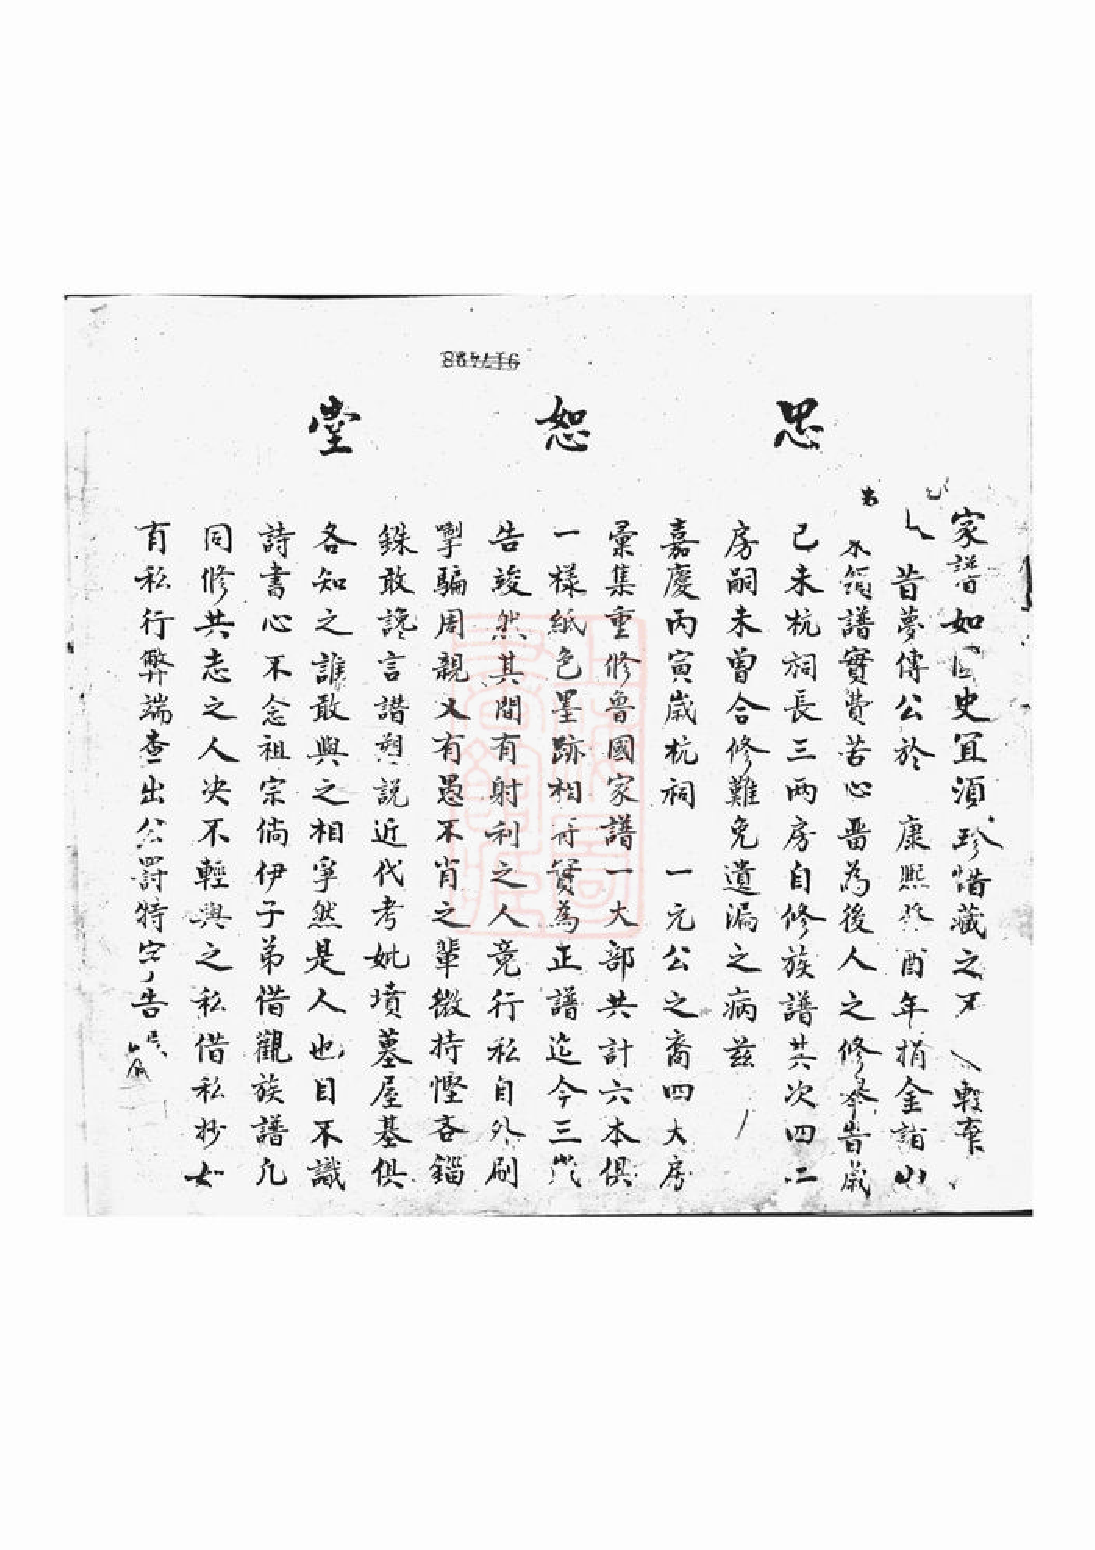 917498
思恕堂
家譜如國史宜須珍惜藏之不
昔夢傳公於 康熙癸酉年捐金詣
譜實費苦心畱為後人之修 昔歲
己未杭祠長三兩房自修族譜其次四二
房嗣未曾合修難免遺漏之病茲
嘉慶丙寅歲杭祠 一元公之裔四大房
彙集重修魯國家譜一大部共計六本俱
一樣紙色墨跡相符贤為正譜迄今三
告竣然其間有射利之人竟行私自外刷
掣騙周親又有愚不肖之輩微持慳吝錙
銖敢讒言譖朔說近代考妣墳墓屋基俱
各知之誰敢與之相爭然是人也目不識
詩書心不念祖宗倘伊子弟借觀族譜凡
同修共志之人决不輕與之私借私抄如
有私行弊端查出公罰特字告